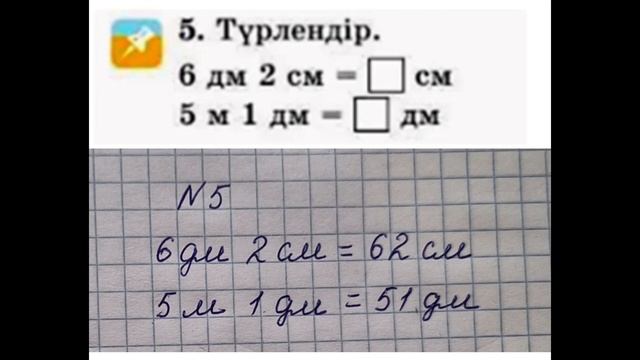 5. Түрлендір.
6 дм 2 см = см
5 м 1 дм = дм
N5
6 дм 2 см = 62 см
5 м 1 дм = 51 дм